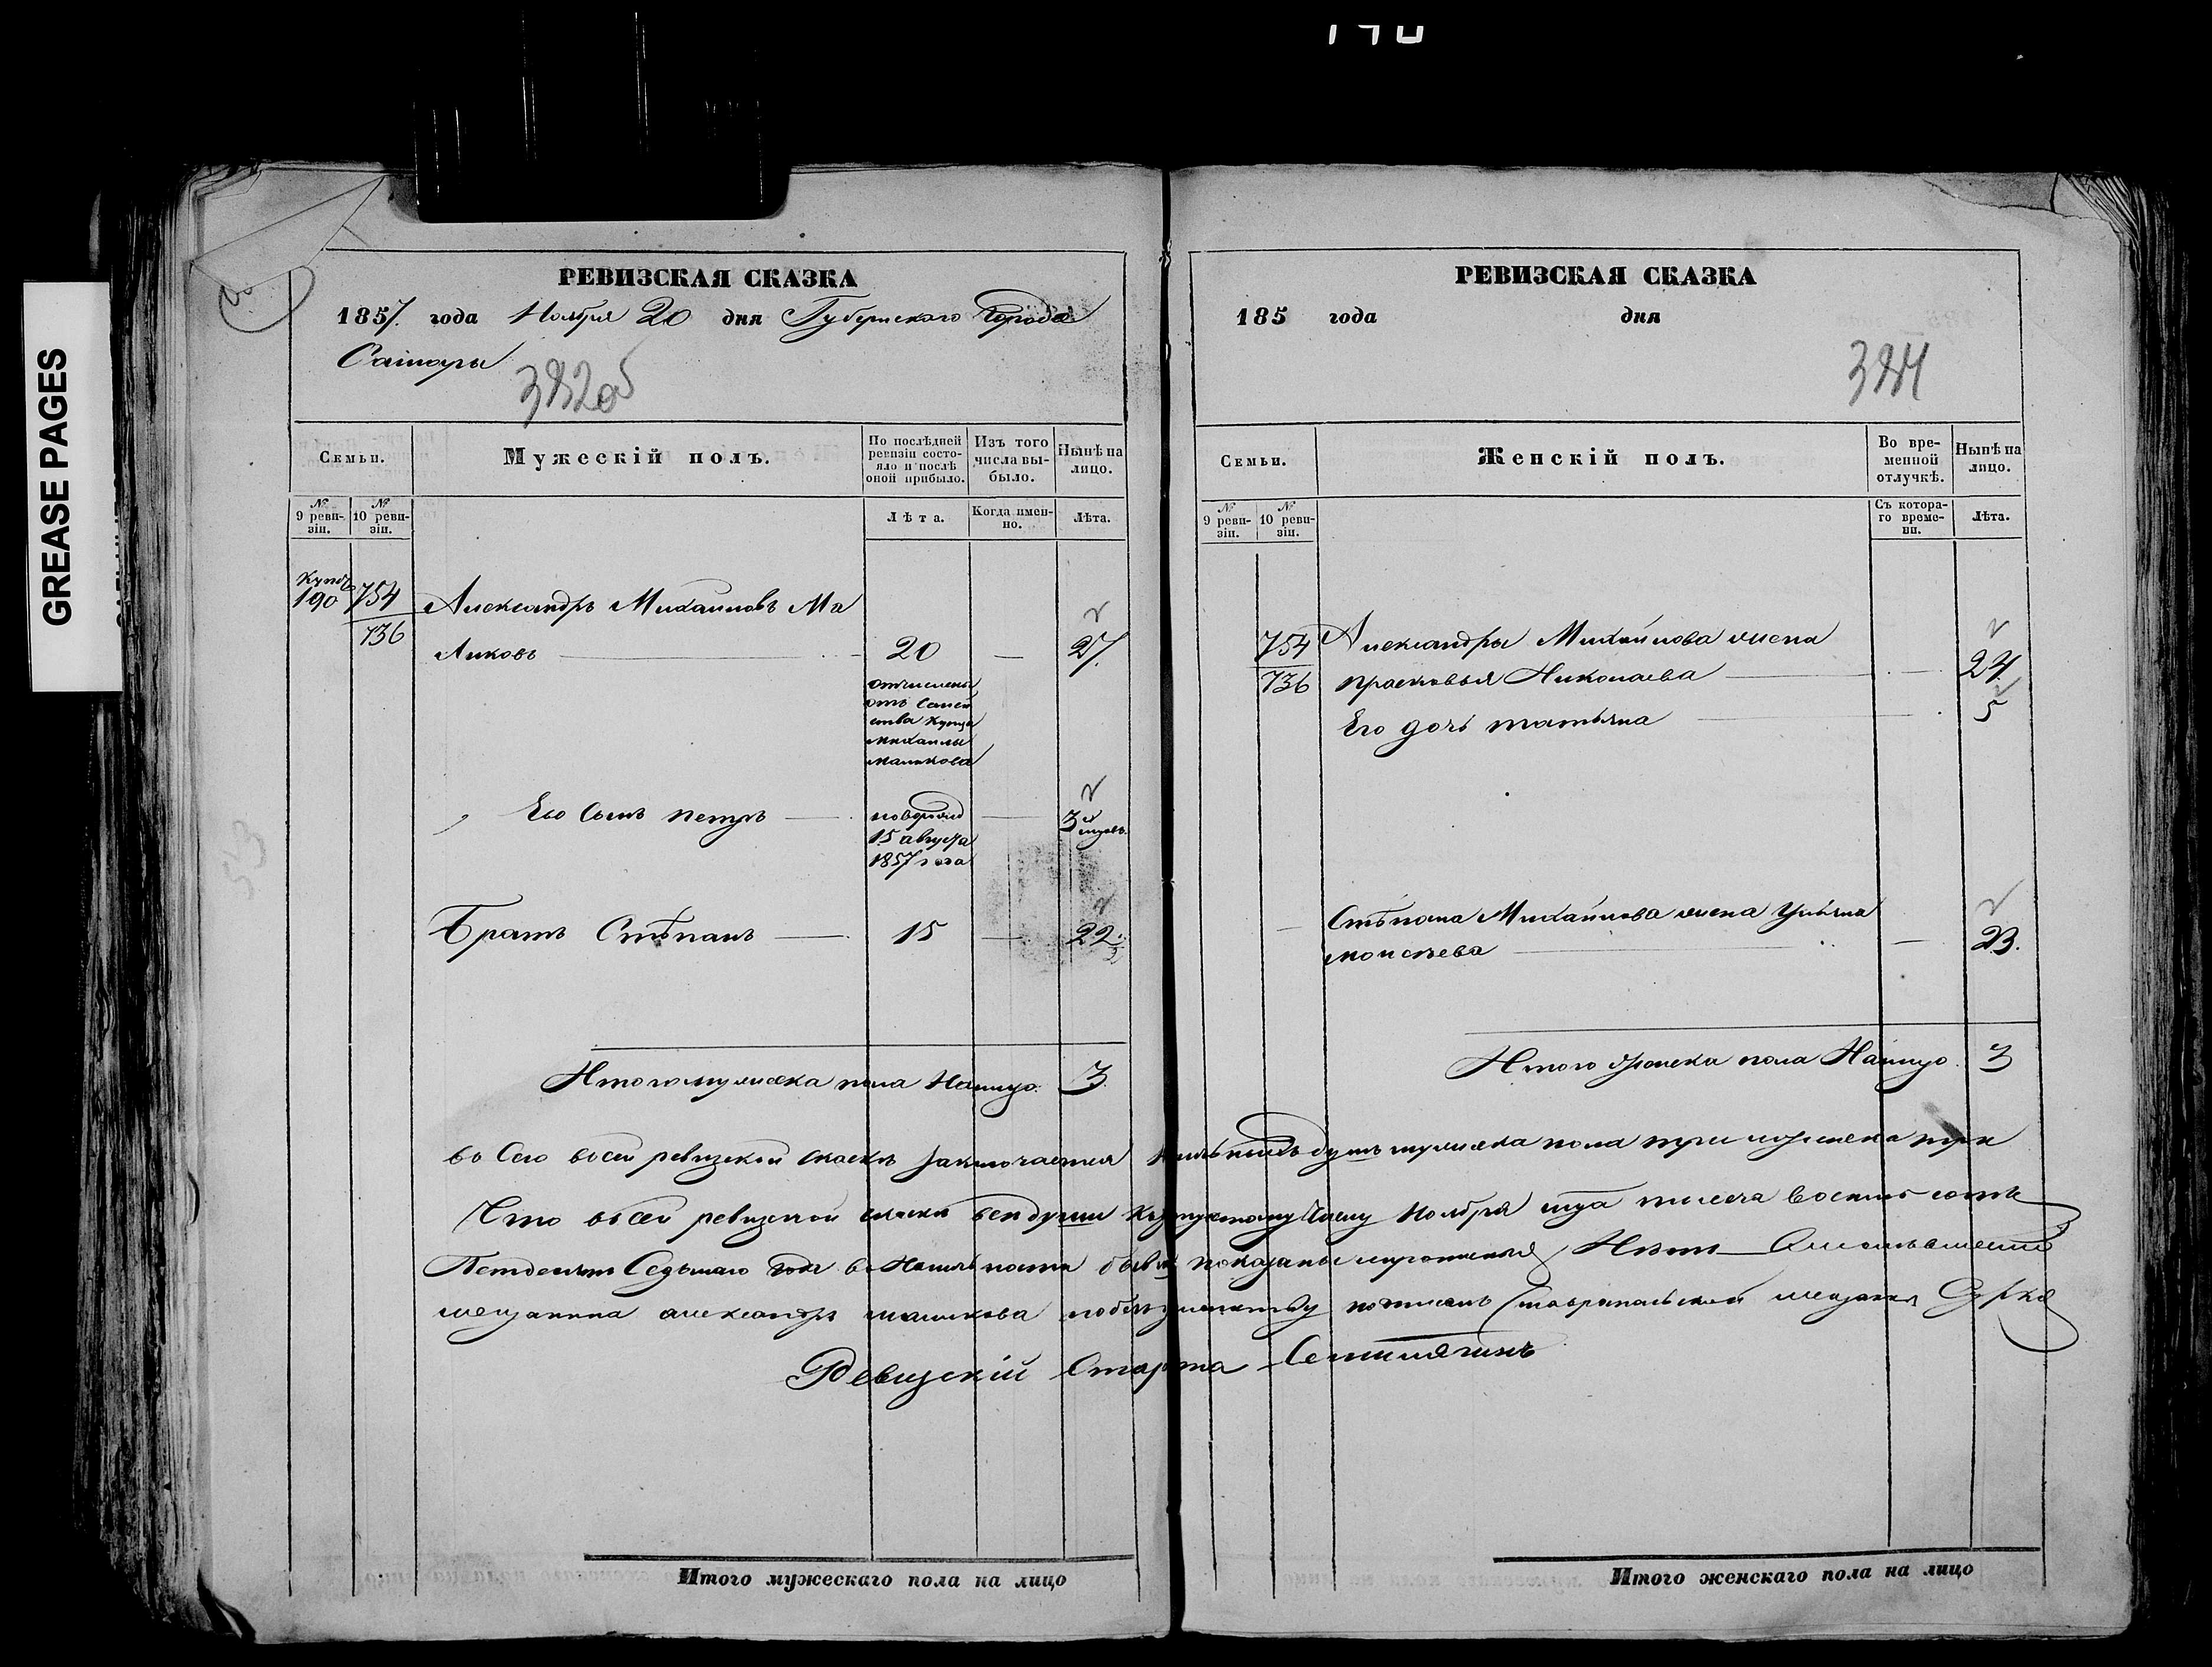 GREASE PAGES
РЕВИЗСКАЯ СКАЗКА
1857. года Ноября 20 дня Губернского Города
Самары
382об
Семьи.
Мужескій полъ.
По послѣдней ревизіи состояло и послѣ оной прибыло.
Изъ того числа выбыло.
Нынѣ на лицо.
№ 9 ревизіи.
№ 10 ревизіи.
Лѣта.
Когда именно.
Лѣта.
Купч
190 754
736
Александръ Михаиловъ Ма
ликовъ 20 — 27.
отчисленъ
отъ Семей
ства купца
михаилы
маликова
Его Сынъ петръ — новорожд — 3 м
15 августа
1857 года
Братъ Стѣпанъ — 15 — 22
Итого мужеска пола Налицо. 3
РЕВИЗСКАЯ СКАЗКА
185 года дня
384
Семьи.
Женскій полъ.
Во временной отлучкѣ.
Нынѣ на лицо.
№ 9 ревизіи.
№ 10 ревизіи.
Съ котораго времени.
Лѣта.
754 Александры Михайлова жена
736 прасковья Николаева — 24
Его дочь татьяна 5
Стѣпана Михайлова жена Ульяна
моисѣева — 23.
Итого женска пола Налицо. 3
во Сей ревизской скаскѣ заключается душъ мужеска пола три женска три
Что въсей ревизской скаски всѣ души Ноября тысеча восемь сотъ
Петдесятъ Седьмаго года в Наличности показаны Нѣтъ
мещанина александра маликова подписалъ Ставропольской мещанинъ
Ревизскій Староста
Итого мужескаго пола на лицо
Итого женскаго пола на лицо